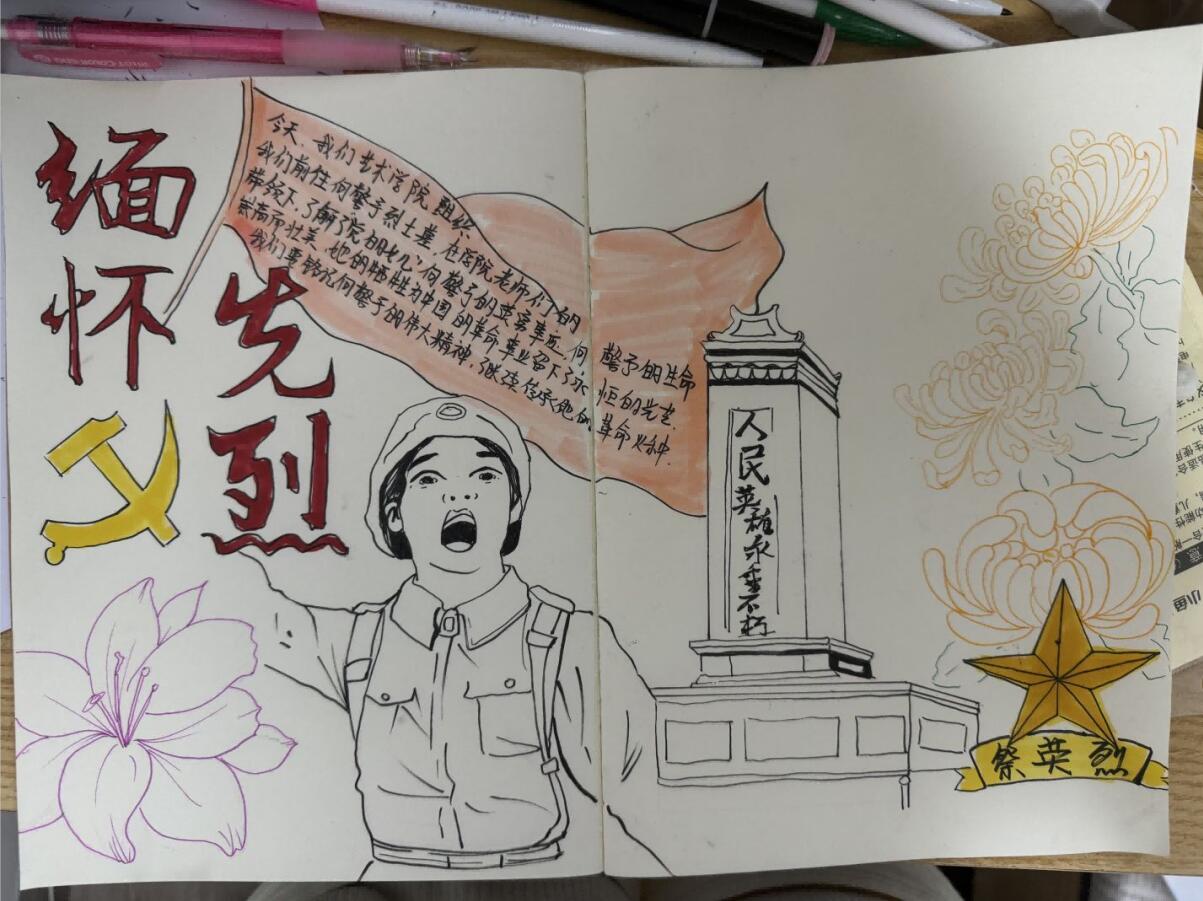 缅怀
先烈
今天、我们艺术学院组织
我们前往向警予烈士墓,在学院老师们的
带领下,了解了党的女儿:向警予的英勇事迹,向警予的生命
崇高而壮美,她的牺牲为中国的革命事业留下了永恒的光芒.
我们要铭记向警予的伟大精神,继续传承她的革命火种.
人民英雄永垂不朽
祭英烈